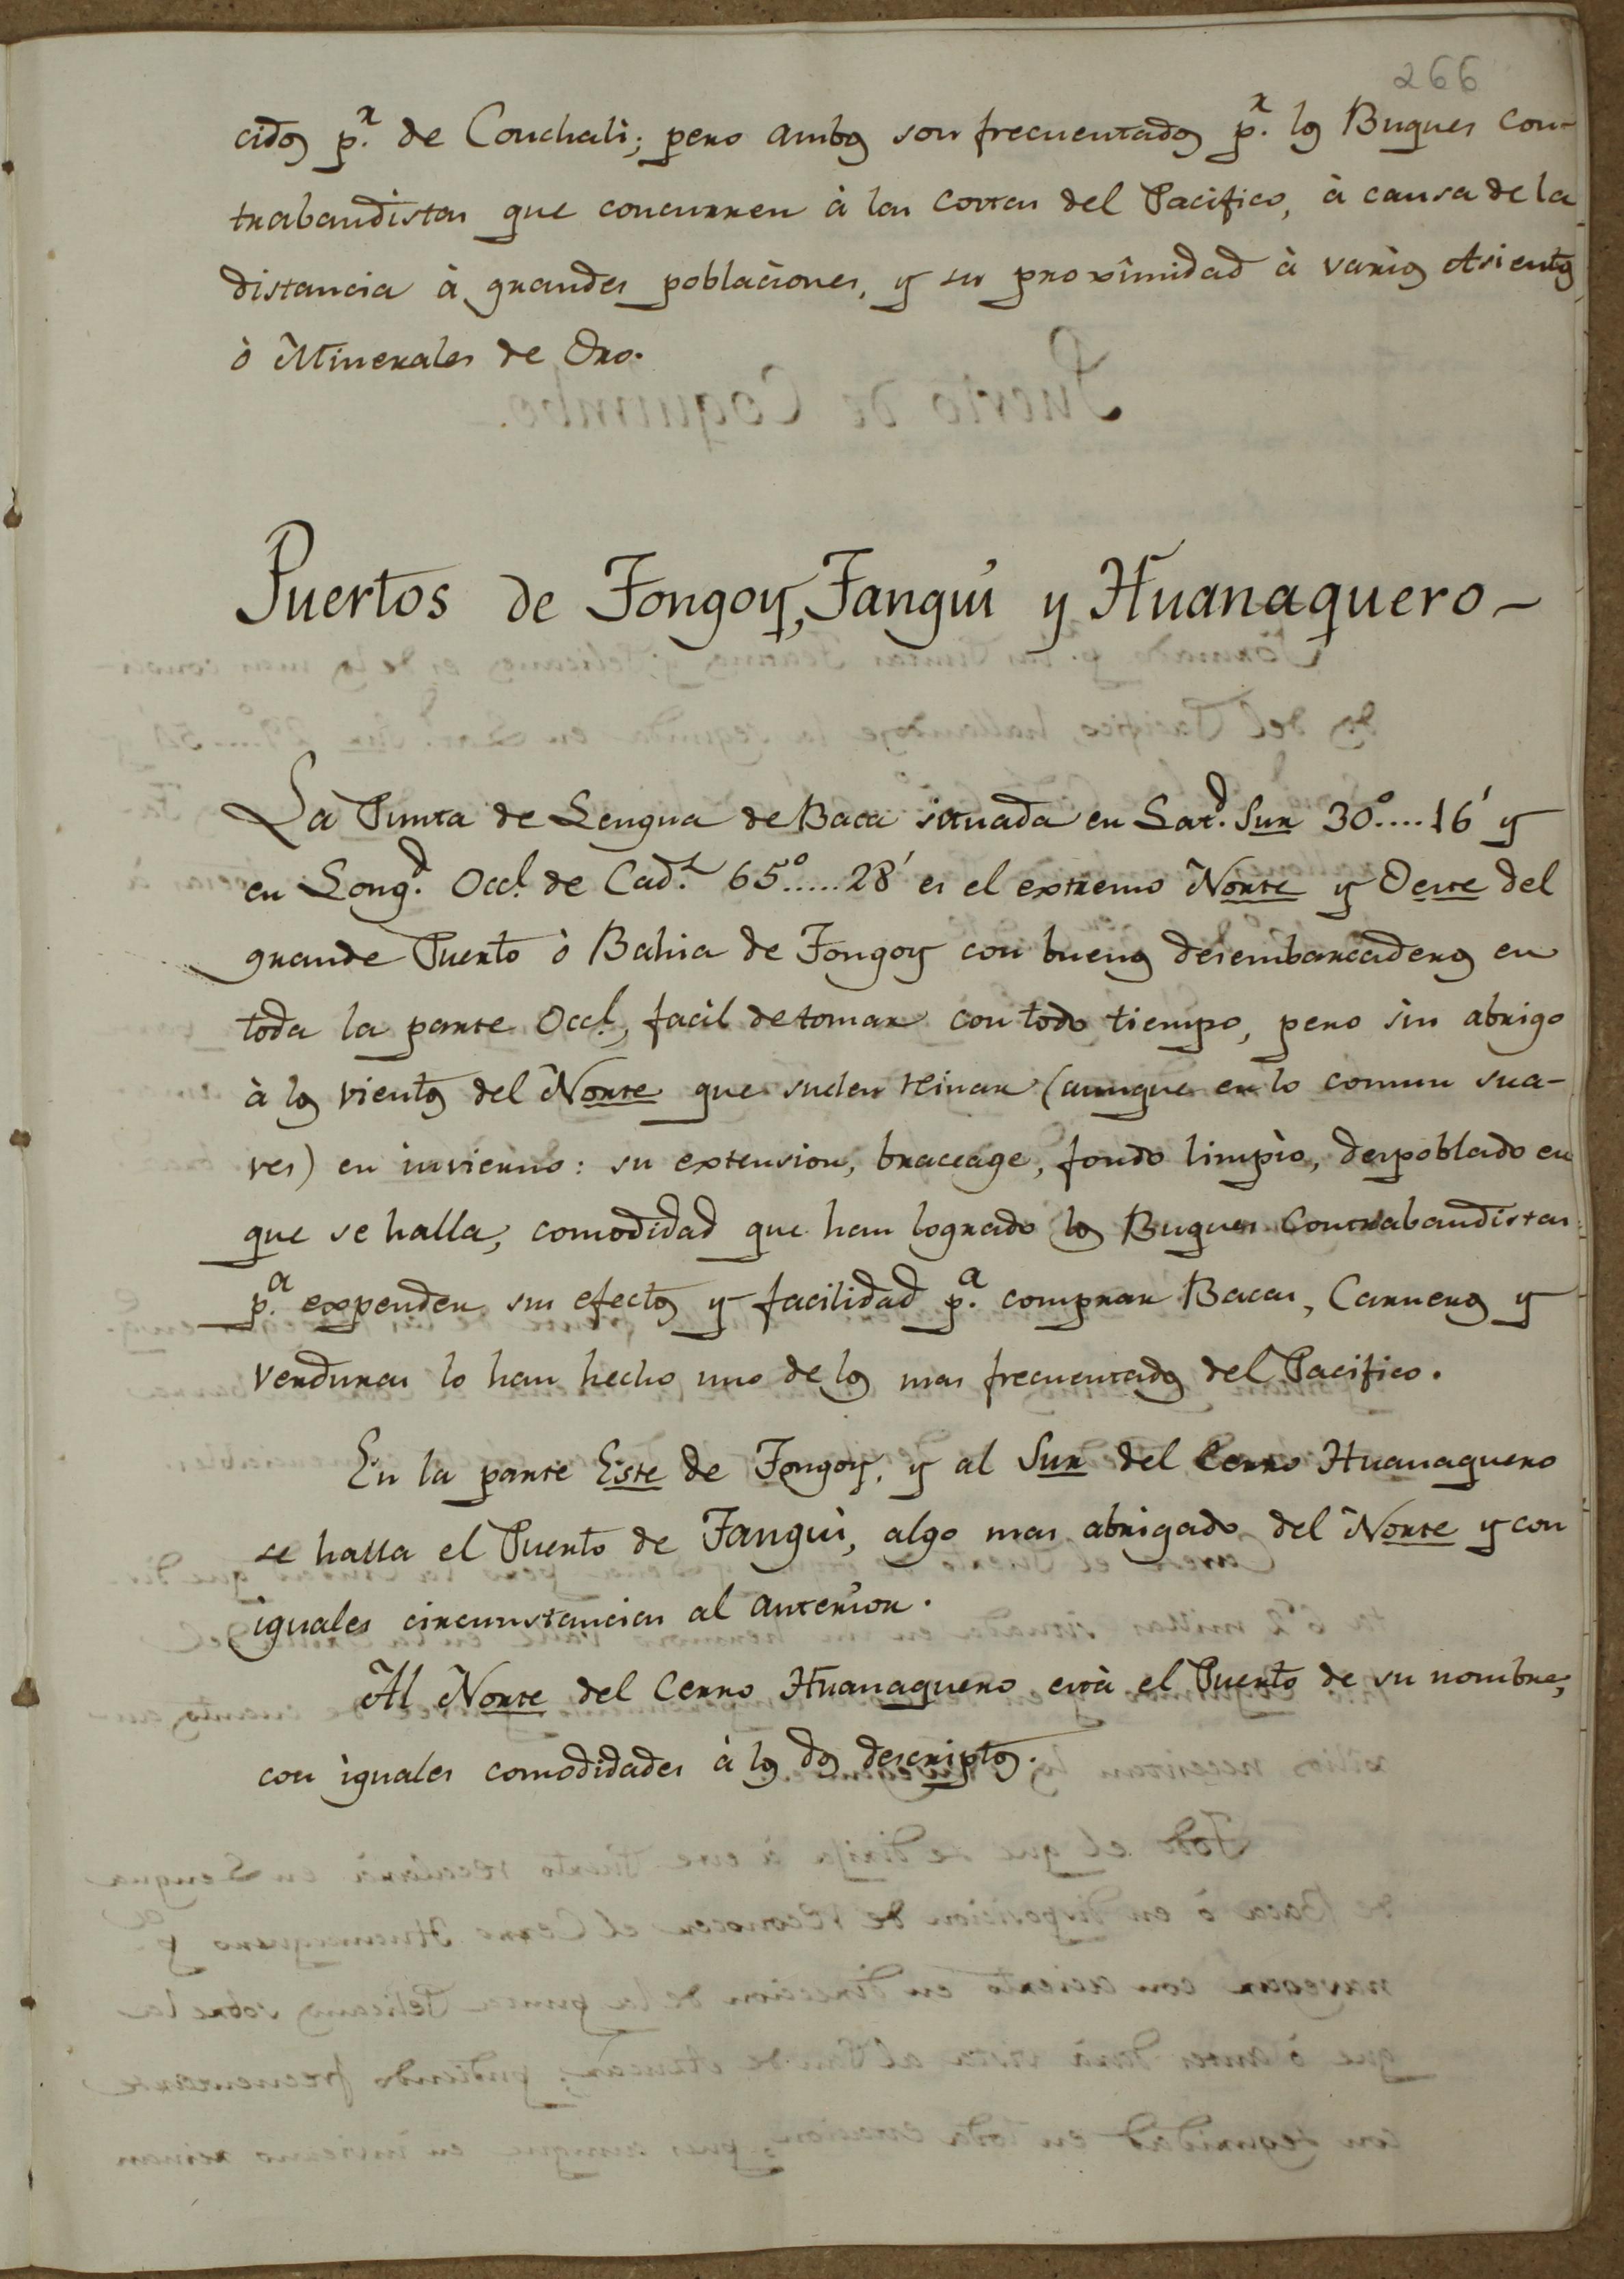 266
cidos p.r de Conchali; pero ambos son frecuentados p.r los Buques con-
trabandistas que concurren à las costas del Pacifico, à causa de la
distancia à grandes poblaciones, y su proximidad à varios Asientos
ò Minerales de Oro.
Puertos de Tongoy, Tangui y Huanaquero-
La Punta de Lengua de Baca situada en Lat.d Sur 30°....16' y
en Long.d Occl. de Cad.z 65°.....28' es el extremo Norte y Oeste del
grande Puerto ò Bahia de Tongoy con buenos desembarcaderos en
toda la parte Occl., facil de tomar con todo tiempo, pero sin abrigo
à los vientos del Norte que suelen reinar (aunque en lo comun sua-
ves) en invierno: su extension, braceage, fondo limpio, despoblado en
que se halla, comodidad que han logrado los Buques Contrabandistas
p.a expender sus efectos y facilidad p.a comprar Bacas, Carneros y
verduras lo han hecho uno de los mas frecuentados del Pacifico.
En la parte Este de Tongoy, y al Sur del Cerro Huanaquero
se halla el Puerto de Tangui, algo mas abrigado del Norte y con
iguales circunstancias al anterior.
Al Norte del Cerro Huanaquero està el Puerto de su nombre,
con iguales comodidades à los dos descriptos.